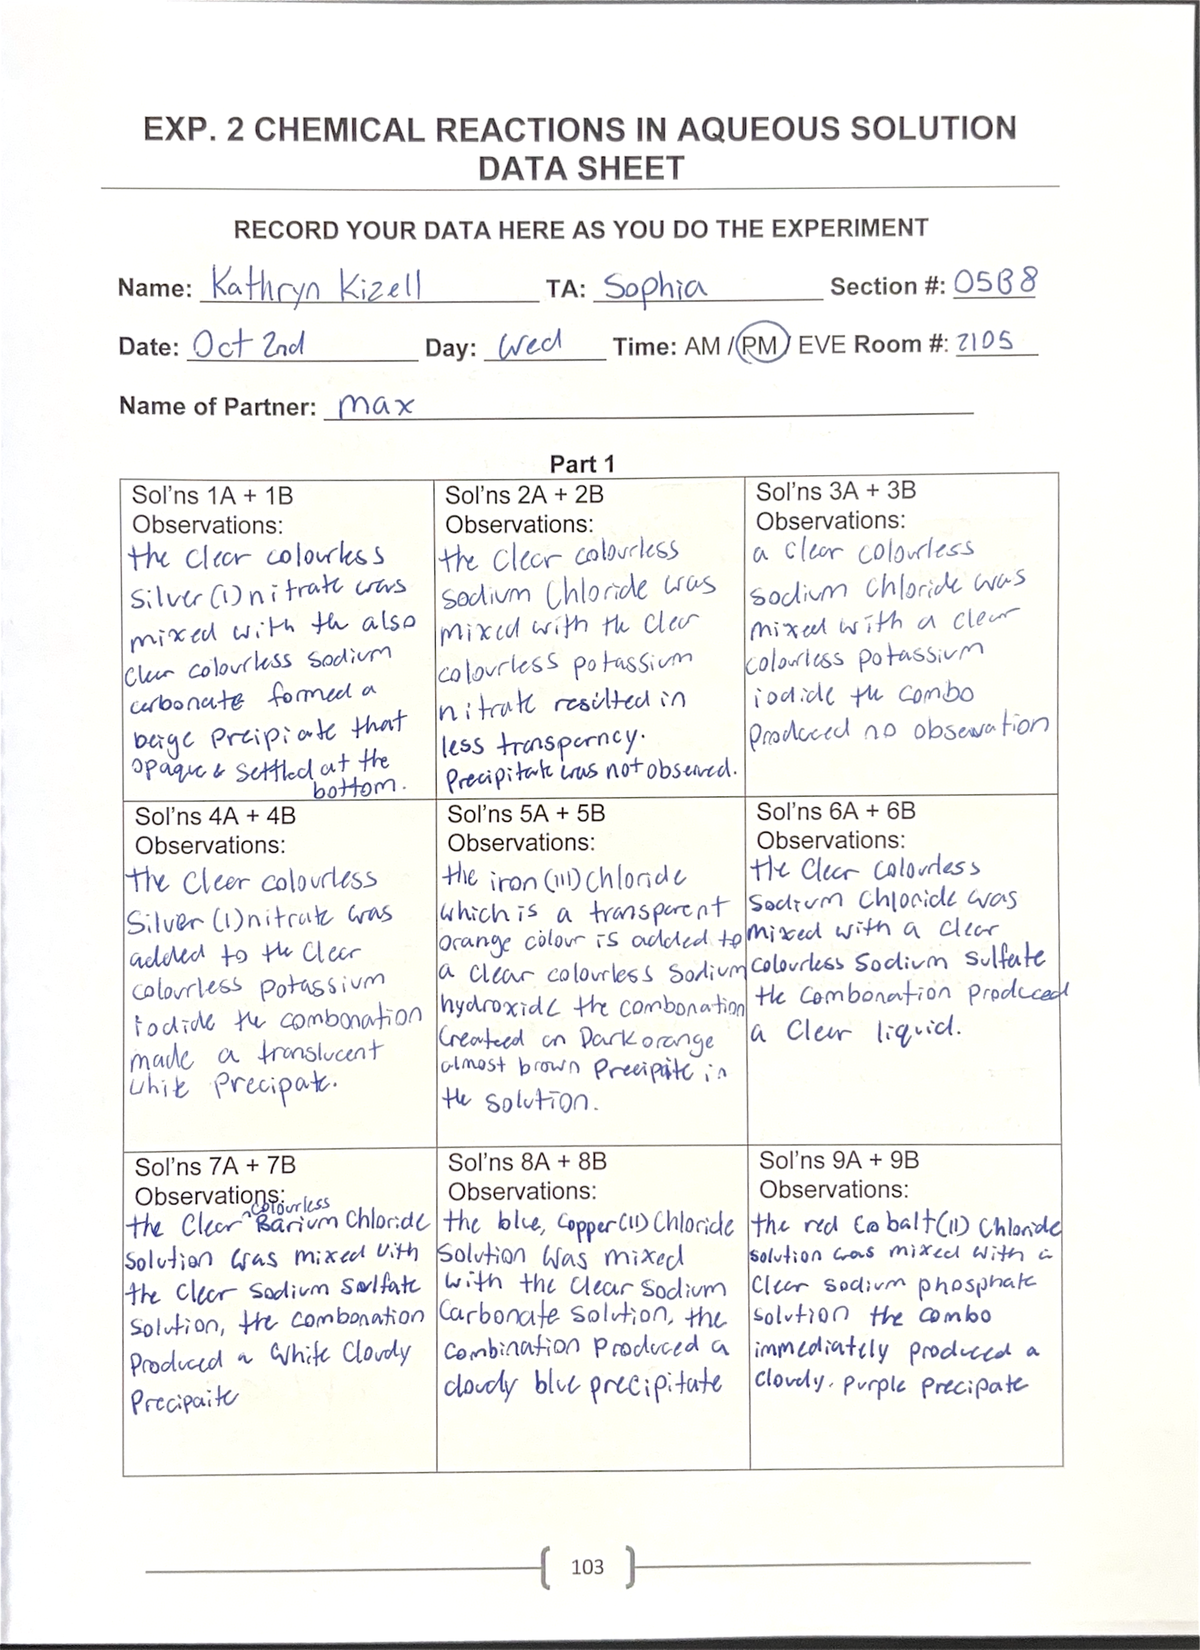 EXP. 2 CHEMICAL REACTIONS IN AQUEOUS SOLUTION
DATA SHEET
RECORD YOUR DATA HERE AS YOU DO THE EXPERIMENT
Name: Kathryn Kizell TA: Sophia Section #: 05B8
Date: Oct 2nd Day: Wed Time: AM / PM / EVE Room #: 2105
Name of Partner: Max
Part 1
Sol'ns 1A + 1B
Observations:
the clear colourless
Silver (I) nitrate was
mixed with th also
Clear colourless sodium
carbonate formed a
beige Preipiate that
opaque & settled at the
bottom.
Sol'ns 2A + 2B
Observations:
the clear colourless
sodium Chloride was
mixed with the clear
colourless potassium
nitrate resilted in
less transperncy.
Precipitate was not observed.
Sol'ns 3A + 3B
Observations:
a clear colourless
sodium Chloride was
mixed with a clear
colourless potassium
iodide the combo
produced no observation
Sol'ns 4A + 4B
Observations:
the Cleer colourless
Silver (I) nitrate was
added to the Clear
colourless potassium
iodide the combonation
made a translucent
white Precipate.
Sol'ns 5A + 5B
Observations:
the iron (III) Chloride
which is a transparent
orange colour is added to
a clear colourless Sodium
hydroxide the combonation
Createed an Dark orange
almost brown Precipite in
the solution.
Sol'ns 6A + 6B
Observations:
the Clear Colourless
Sodium Chloride was
mixed with a clear
colourless Sodium sulfate
the Combonation produced
a Clear liquid.
Sol'ns 7A + 7B
Observations:
the Clear ^colourless Barium Chloride
solution was mixed with
the clear sodium Sulfate
solution, the combonation
Produced a White Cloudy
Precipaite
Sol'ns 8A + 8B
Observations:
the blue, Copper (II) Chloride
Solution was mixed
with the clear sodium
Carbonate solution, the
combination produced a
cloudy blue precipitate
Sol'ns 9A + 9B
Observations:
the red Cobalt (II) Chloride
solution was mixed with a
Clear sodium phosphate
solution the combo
immediately produced a
cloudy. purple precipate
103